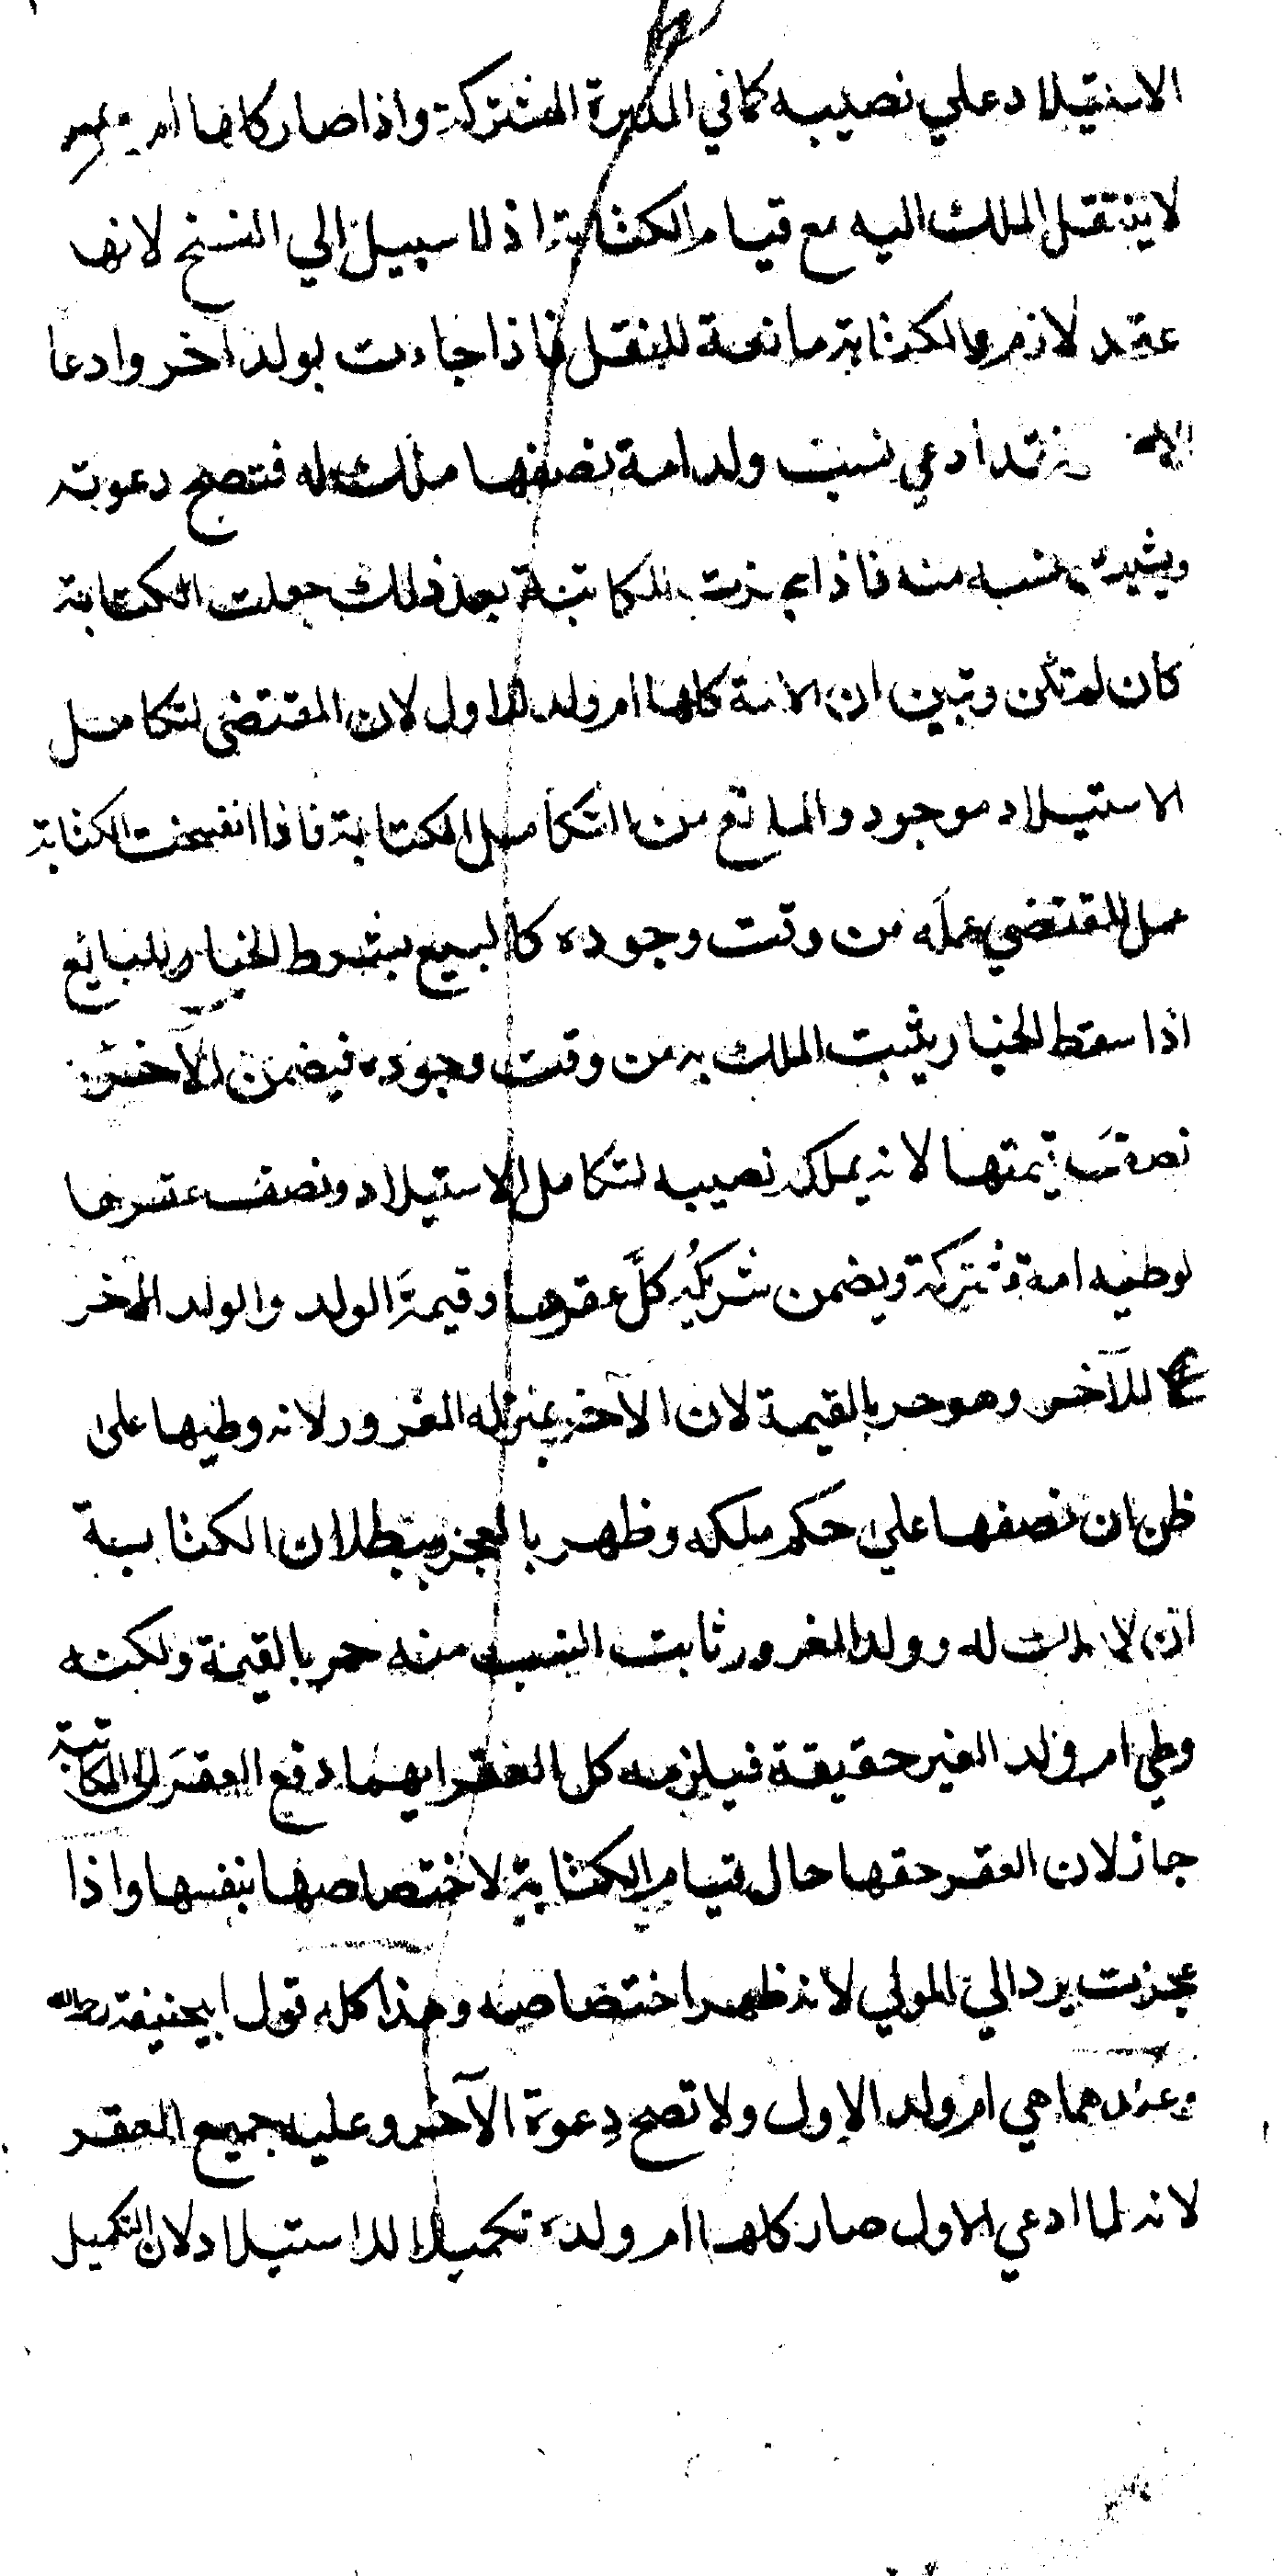 الاستيلاد علي نصيبه كما في المدبرة المشتركة واذا صار كانها ام
لا ينتقل الملك اليه مع قيام الكتابة اذ لا سبيل الي الفسخ لانها
عقد لازم والكتابة مانعة للنقل فاذا جاءت بولد اخر وادعا
الاخر فقد ادعي نسب ولد امة نصفها ملك له فتصح دعوته
ويثبت نسبه منه فاذا عجزت المكاتبة بعد ذلك جعلت الكتابة
كان لم تكن وتبين ان الامة كلها ام ولد للاول لان المقتضي لتكامل
الاستيلاد موجود والمانع من التكامل الكتابة فاذا انفسخت الكتابة
عمل المقتضي عمله من وقت وجوده كالبيع بشرط الخيار للبايع
اذا سقط الخيار يثبت الملك به من وقت وجوده فيضمن الآخر
نصفَ قيمتها لانه يملك نصيبه لتكامل الاستيلاد ونصف عقرها
لوطئه امة مشتركة ويضمن شريكُه كلَّ عقرها وقيمةَ الولد والولد الاخر
للآخر وهو حر بالقيمة لان الآخر بمنزلة المغرور لانه وطيها على
ظن ان نصفها على حكم ملكه وظهر بالعجز وبطلان الكتابة
ان لا ملك له وولد المغرور ثابت النسب منه حر بالقيمة ولكنه
وطي ام ولد الغير حقيقة فيلزمه كل العقر ايهما دفع العقرَ الى المكاتبة
جاز لان العقر حقها حال قيام الكتابة لاختصاصها بنفسها واذا
عجزت يرد الي المولي لانه ظهر اختصاصه وهذا كله قول ابيحنيفة رحمه الله
وعندهما هي ام ولد الاول ولا تصح دِعوة الآخر وعليه جميع العقر
لانه لما ادعي الاول صار كلها ام ولده تكميلا للاستيلاد لان التكميل